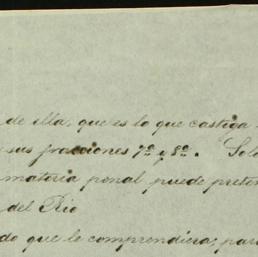 de ella, que es lo que castiga
sus fracciones 7ª y 8ª. Solo
materia penal puede preten
del Rio
do que le comprendiera, para